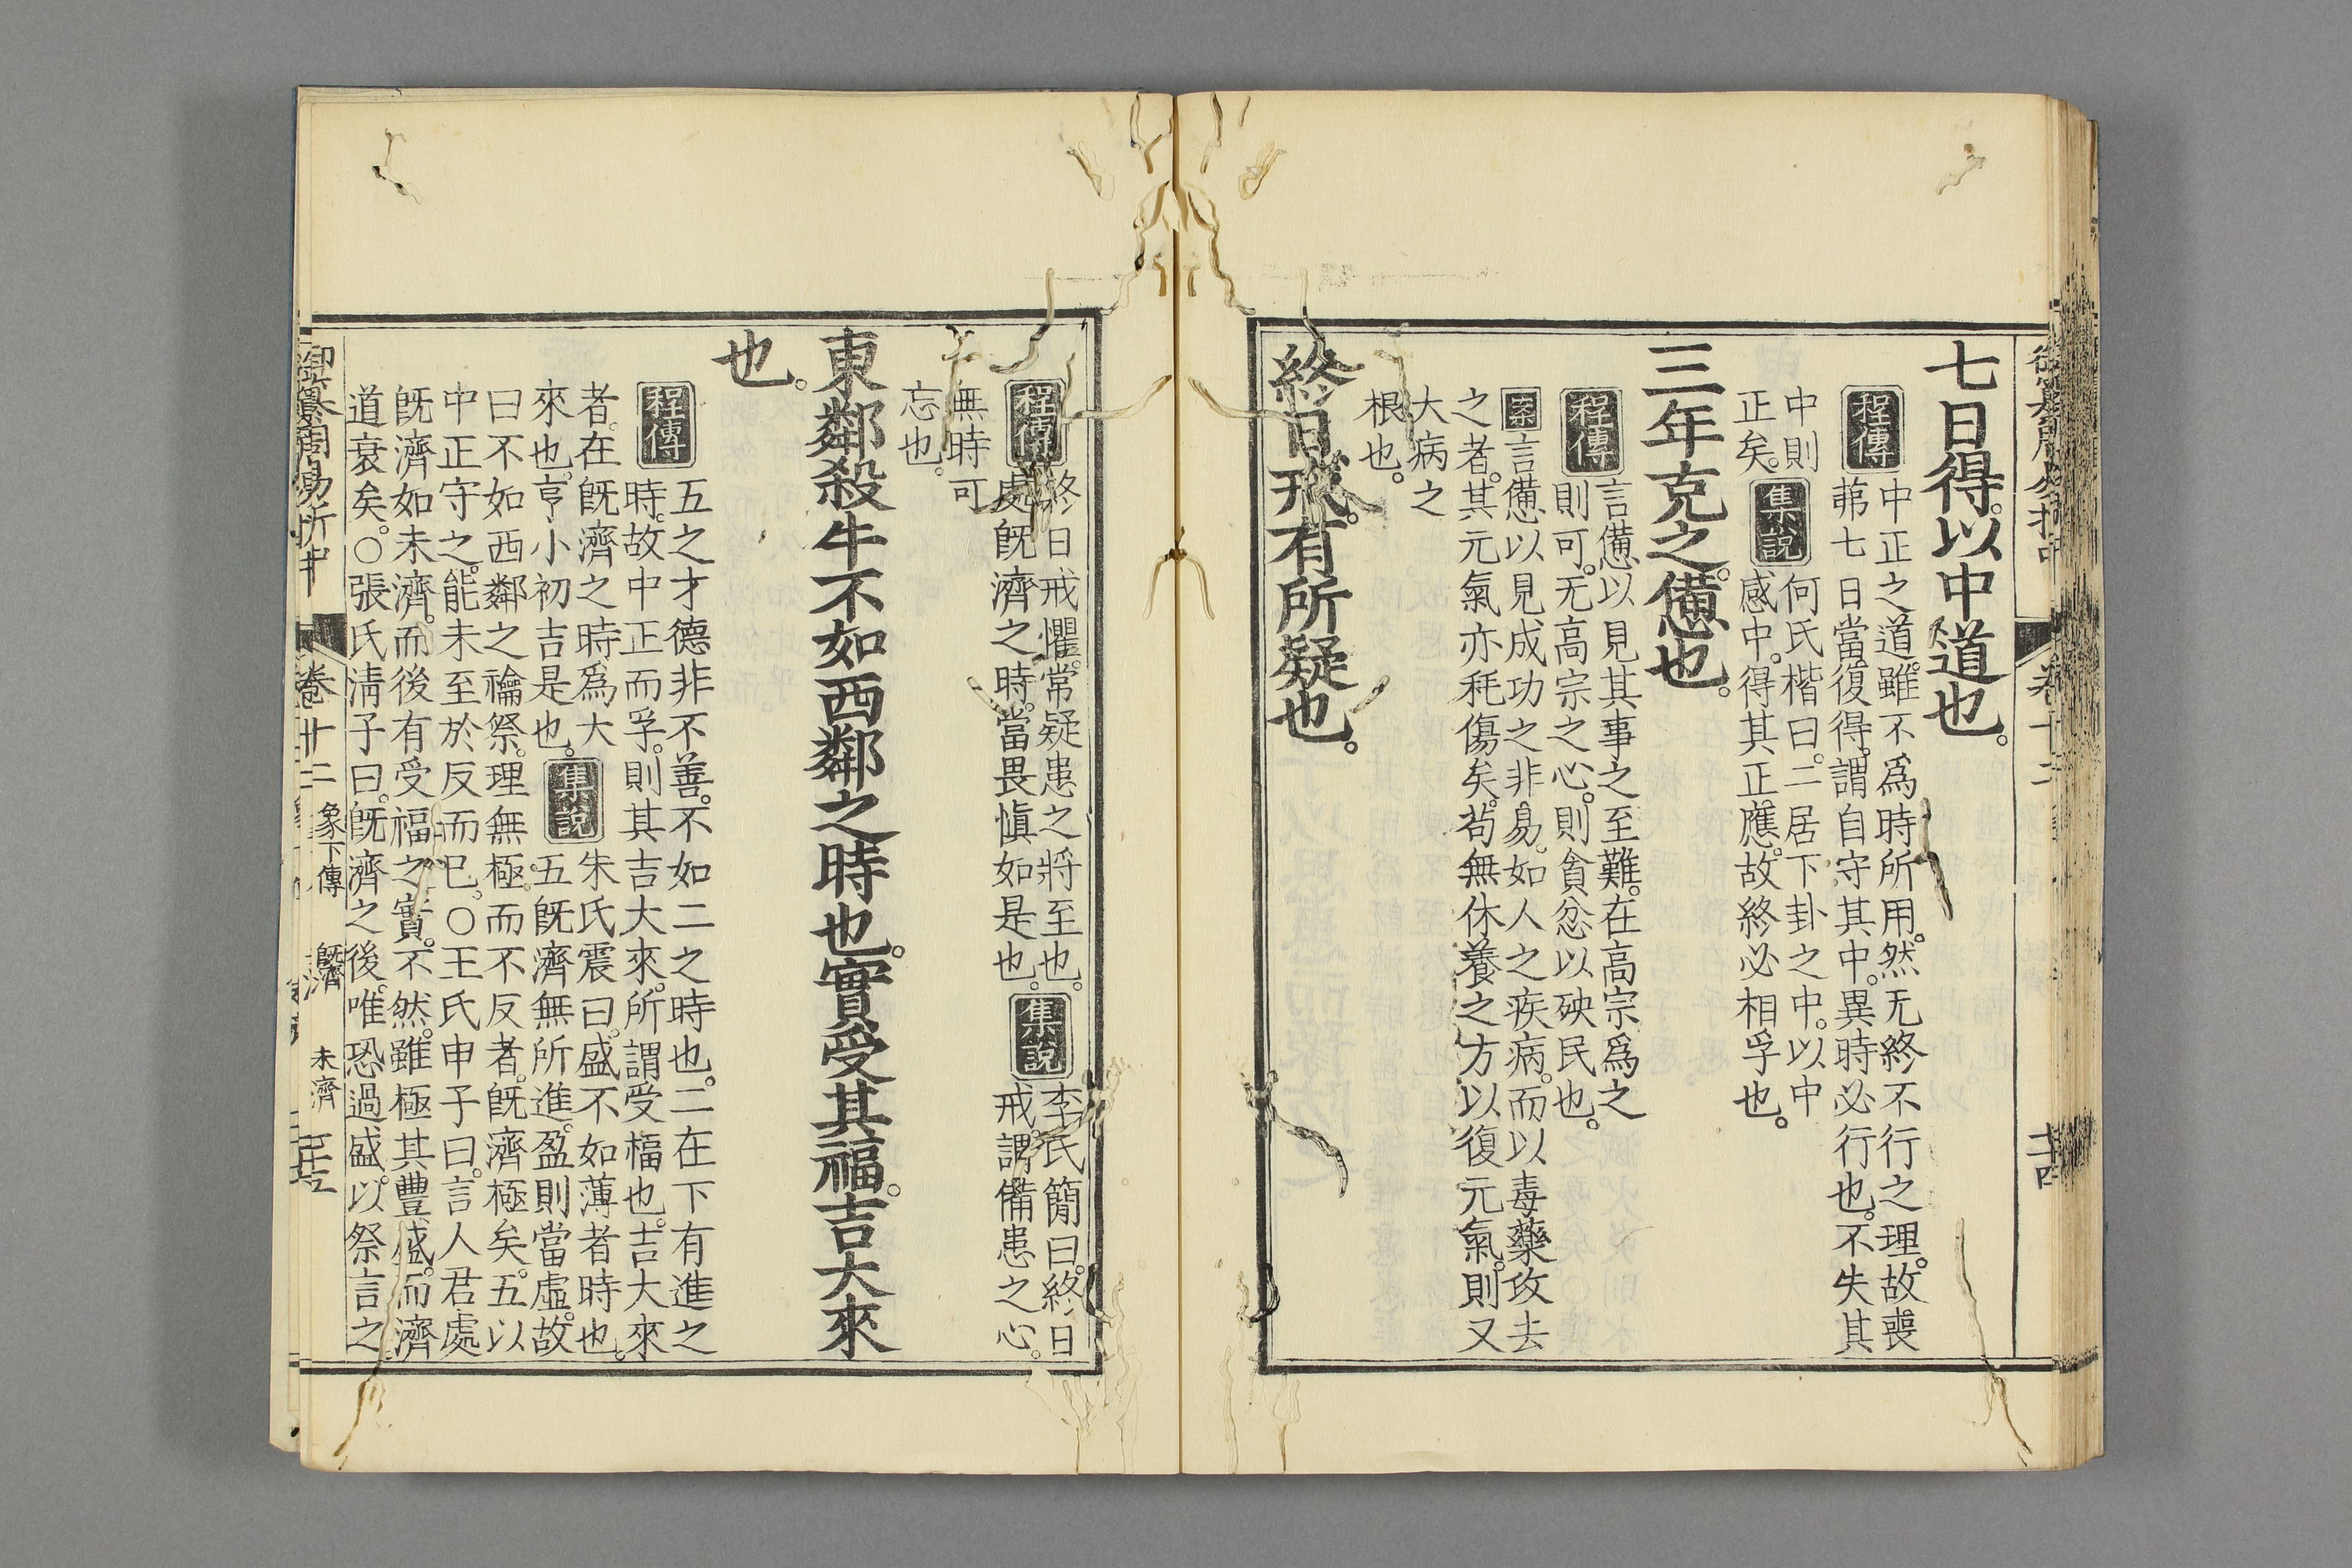 七日得。以中道也。
程傳
中正之道。雖不爲時所用。然无終不行之理。故喪
茀七日當復得。謂自守其中。異時必行也。不失其
中則
正矣。
集說
何氏楷曰。二居下卦之中。以中
感中。得其正應。故終必相孚也。
三年克之。憊也。
程傳
言憊以見其事之至難。在高宗爲之
則可。无高宗之心。則貪忿以殃民也。
案
言憊以見成功之非易。如人之疾病。而以毒藥攻去
之者。其元氣亦秏傷矣。茍無休養之方以復元氣。則又
大病之
根也。
終日戒。有所疑也。
程傳
終日戒懼。常疑患之將至也。
處旣濟之時。當畏愼如是也。
集說
李氏簡曰。終日
戒。謂備患之心。
無時可
忘也。
東鄰殺牛不如西鄰之時也。實受其福。吉大來
也。
程傳
五之才德非不善。不如二之時也。二在下有進之
時。故中正而孚。則其吉大來。所謂受福也。吉大來
者。在旣濟之時爲大
來也。亨小初吉是也。
集說
朱氏震曰。盛不如薄者時也。
五旣濟無所進。盈則當虛。故
曰不如西鄰之禴祭。理無極。而不反者。旣濟極矣。五以
中正守之。能未至於反而已。○王氏申子曰。言人君處
旣濟如未濟。而後有受福之實。不然。雖極其豐盛。而濟
道衰矣。○張氏淸子曰。旣濟之後。唯恐過盛。以祭言之
御纂周易折中
卷十二
象下傳
旣濟
未濟